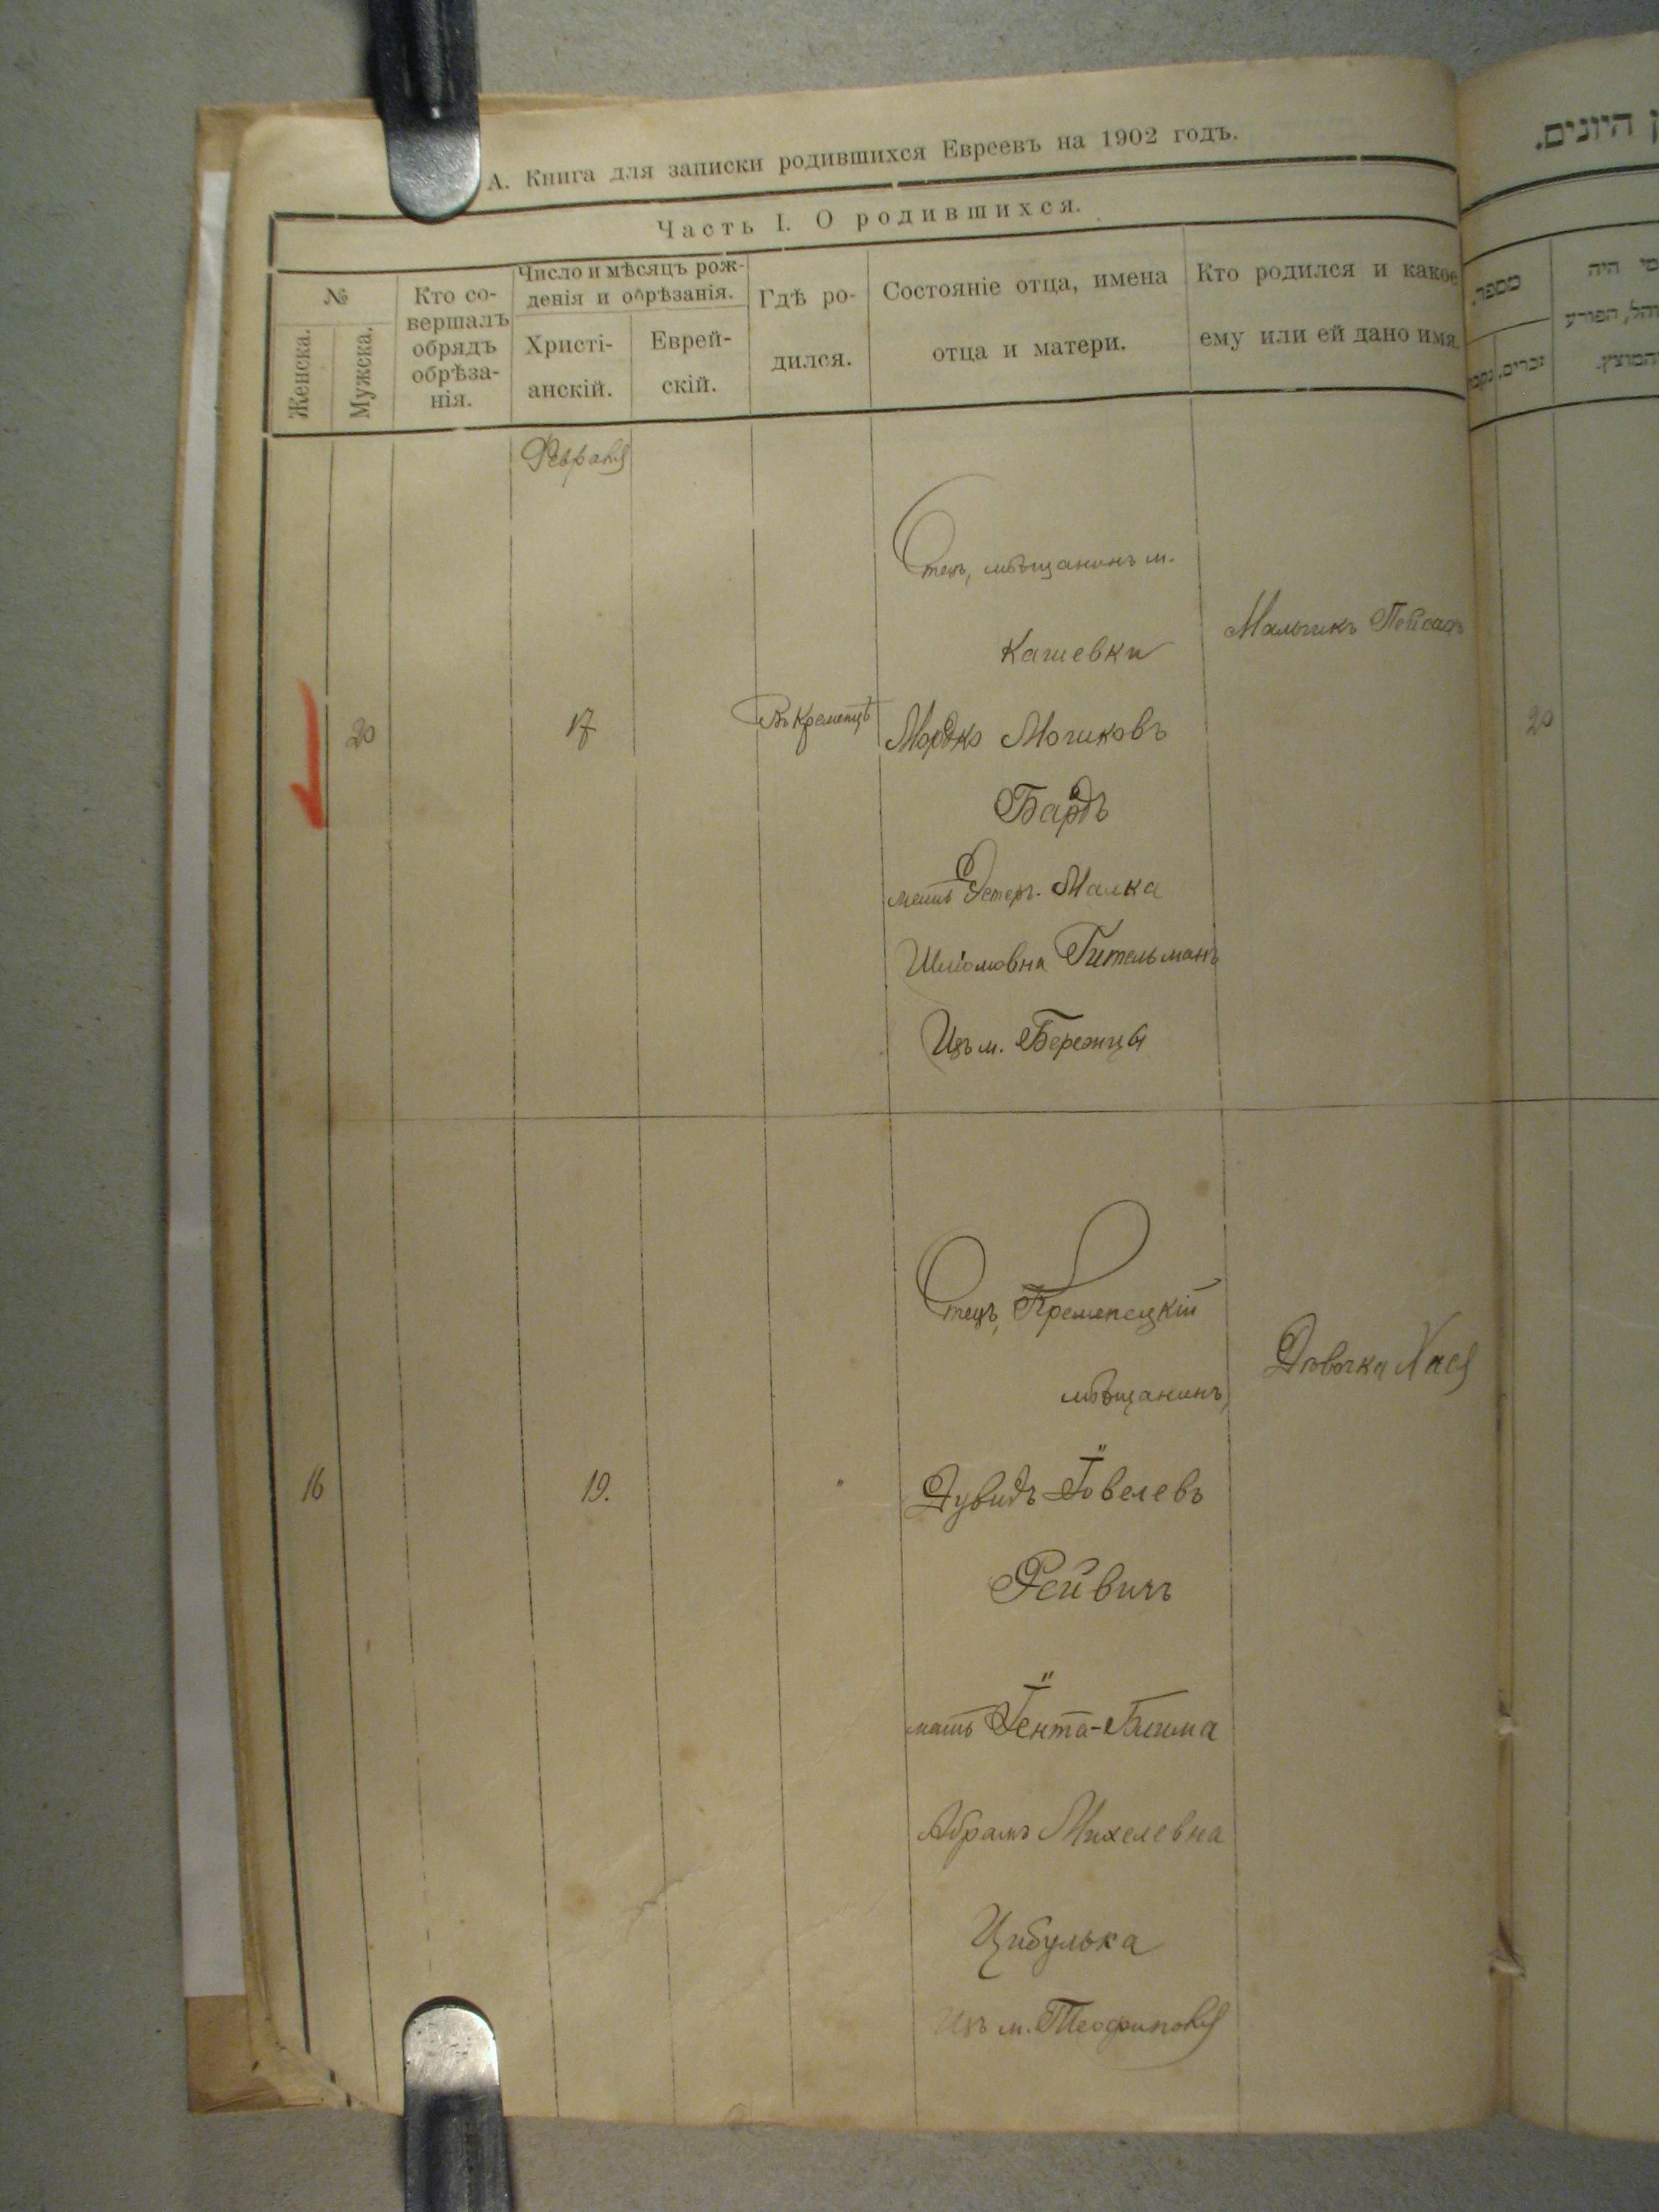 А. Книга для записки родившихся Евреевъ на 1902 годъ.
Часть I. О родившихся.
№
Женска.
Мужска.
Кто со-
вершалъ
обрядъ
обрѣза-
нія.
Число и мѣсяцъ рож-
денія и обрѣзанія.
Христі-
анскій.
Еврей-
скій.
Гдѣ ро-
дился.
Состояніе отца, имена
отца и матери.
Кто родился и какое
ему или ей дано имя.
Февраля
20
17
Въ Кременцѣ
Отецъ, мѣщанинъ м.
Кашевки
Мордко Мошковъ
Бардъ
мать Эстеръ-Малка
Шліомовна Гительманъ
Изъ м. Бережцы
Мальчикъ Пейсахъ
16
19.
Отецъ, Кременецкій
мѣщанинъ,
Дувидъ Іовелевъ
Рейвичъ
мать Іента-Блима
Абрамъ Михелевна
Цибулька
Изъ м. Теофиполя
Дѣвочка Хася
היונים.
מספר.
זכרים.
מי היה
המוהל, הפורע
והמוצץ.
20